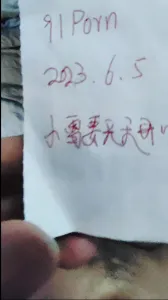 91Porn
2023.6.5
小需要天天